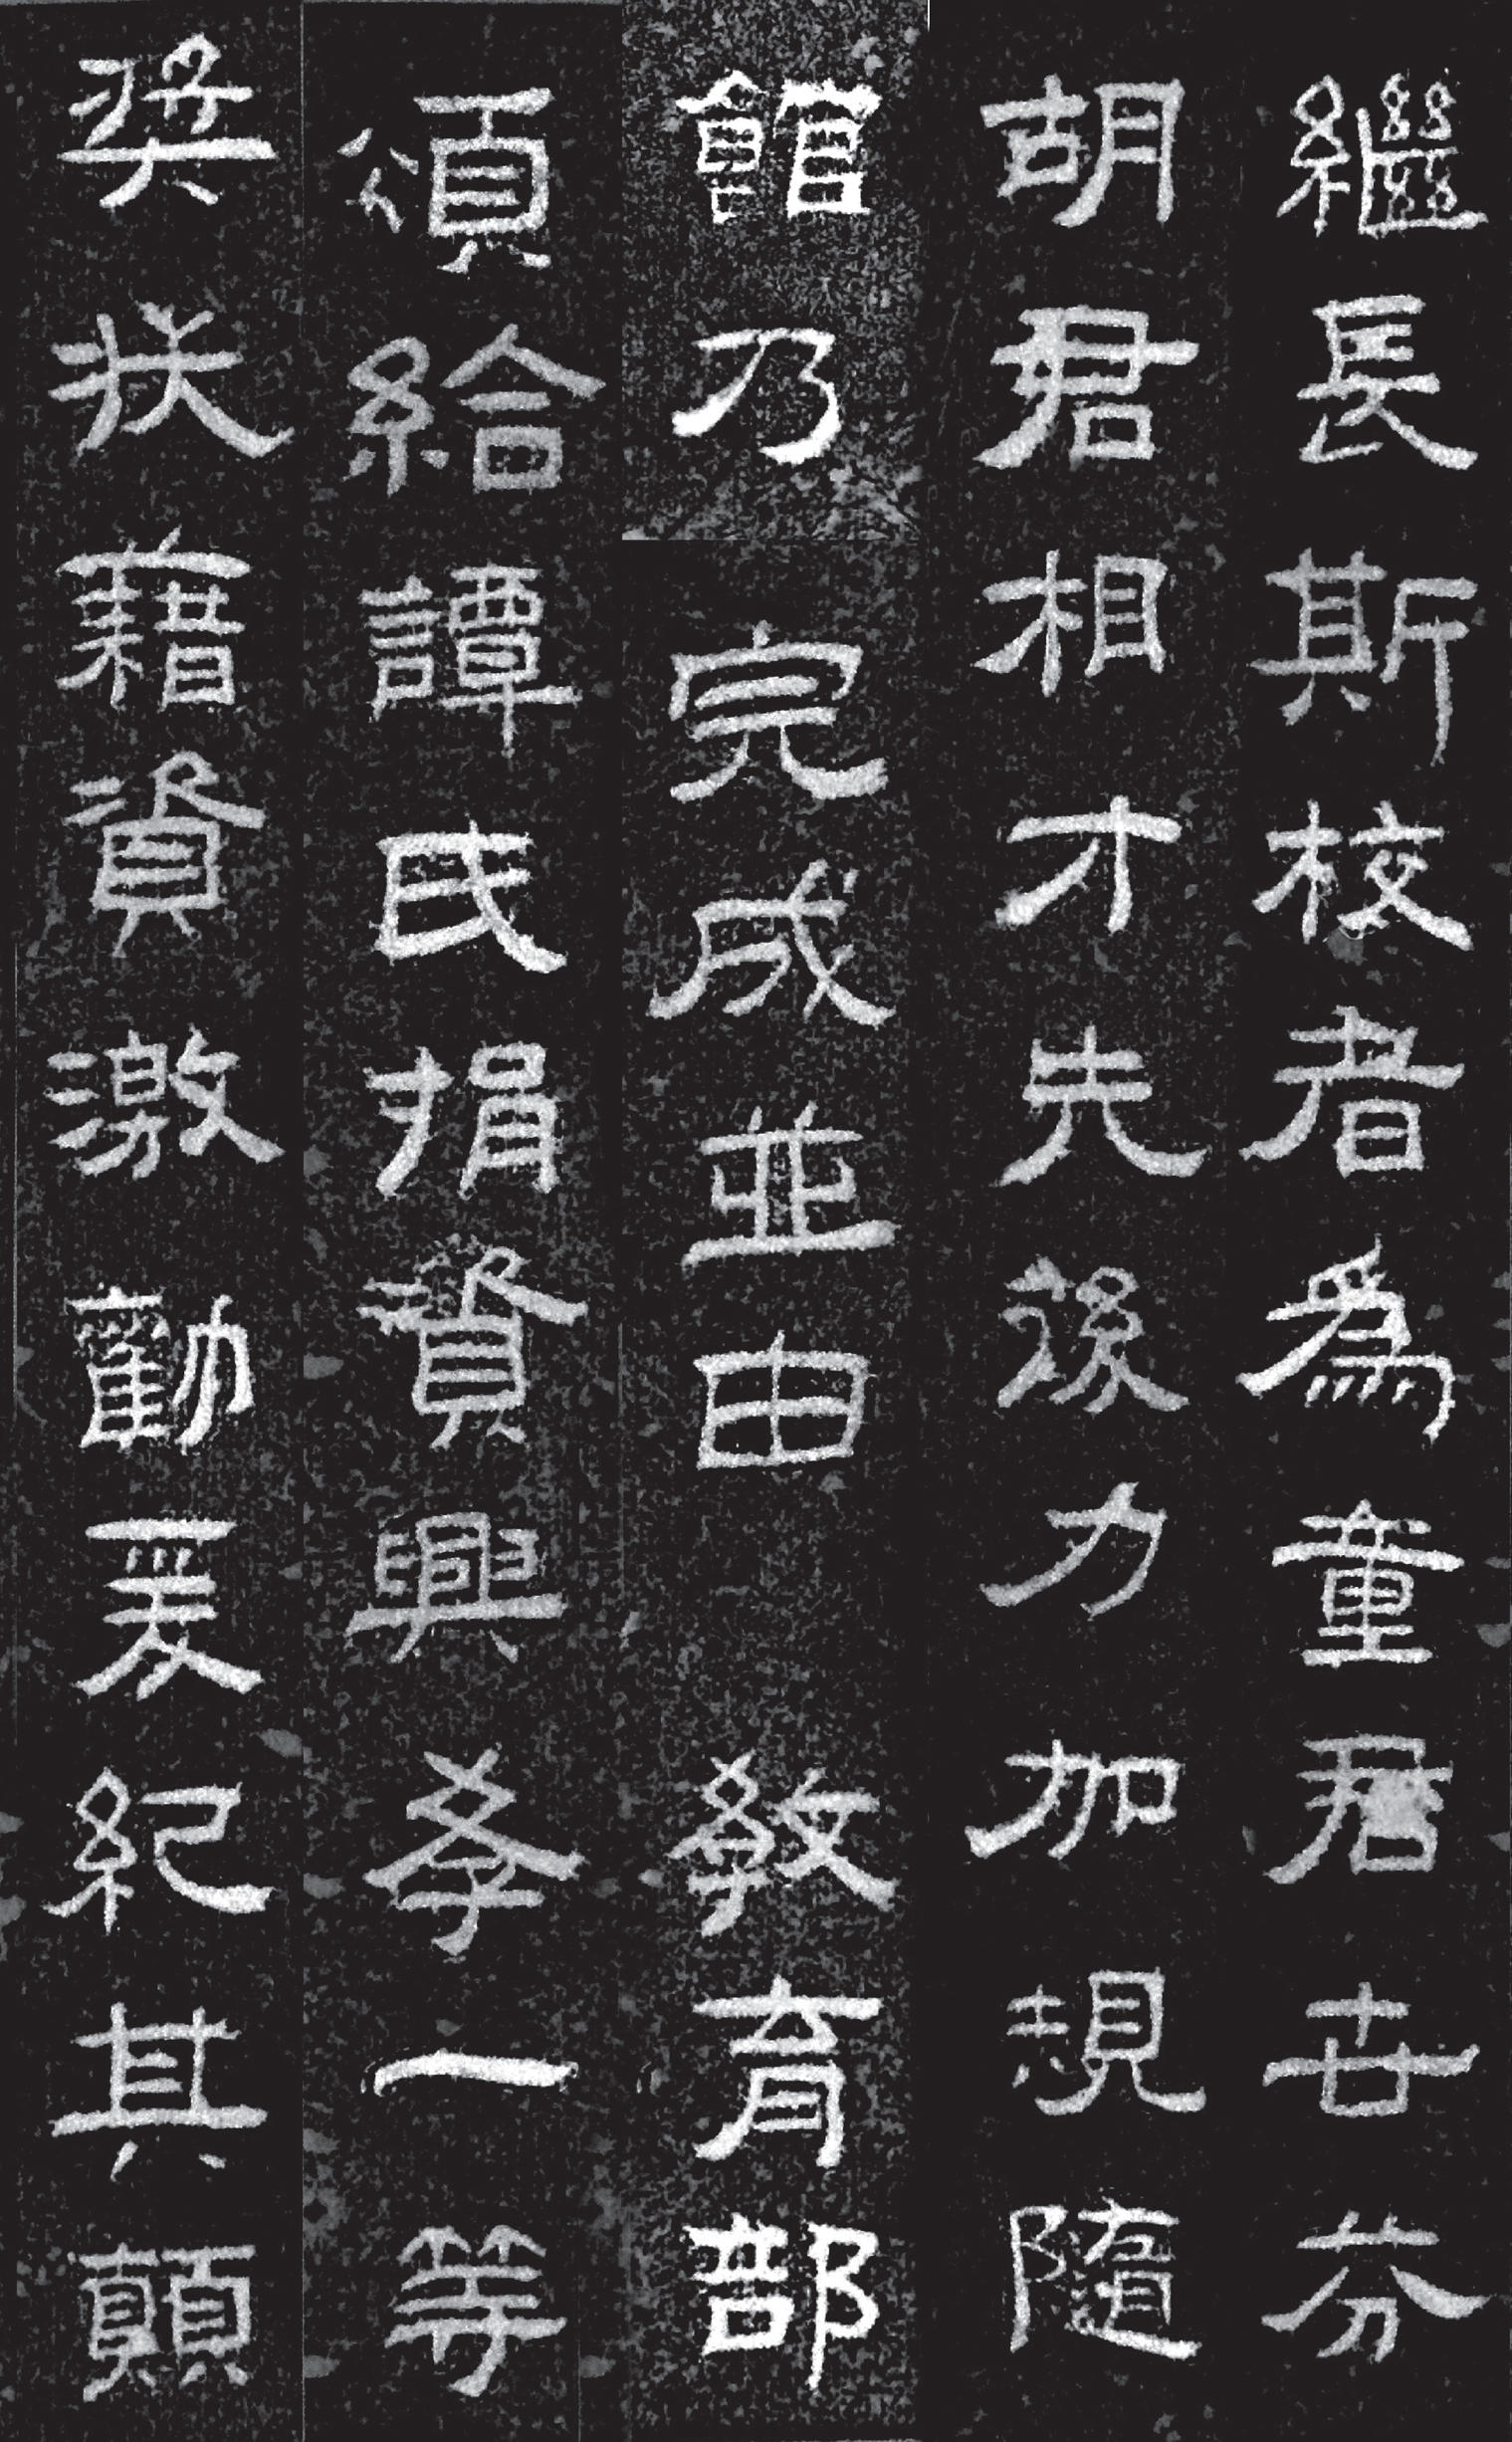 繼長斯校者爲童君世芬
胡君相才先後力加規隨
館乃完成並由 教育部
頒給譚氏捐資興學一等
奬狀藉資激勸爰紀其顛